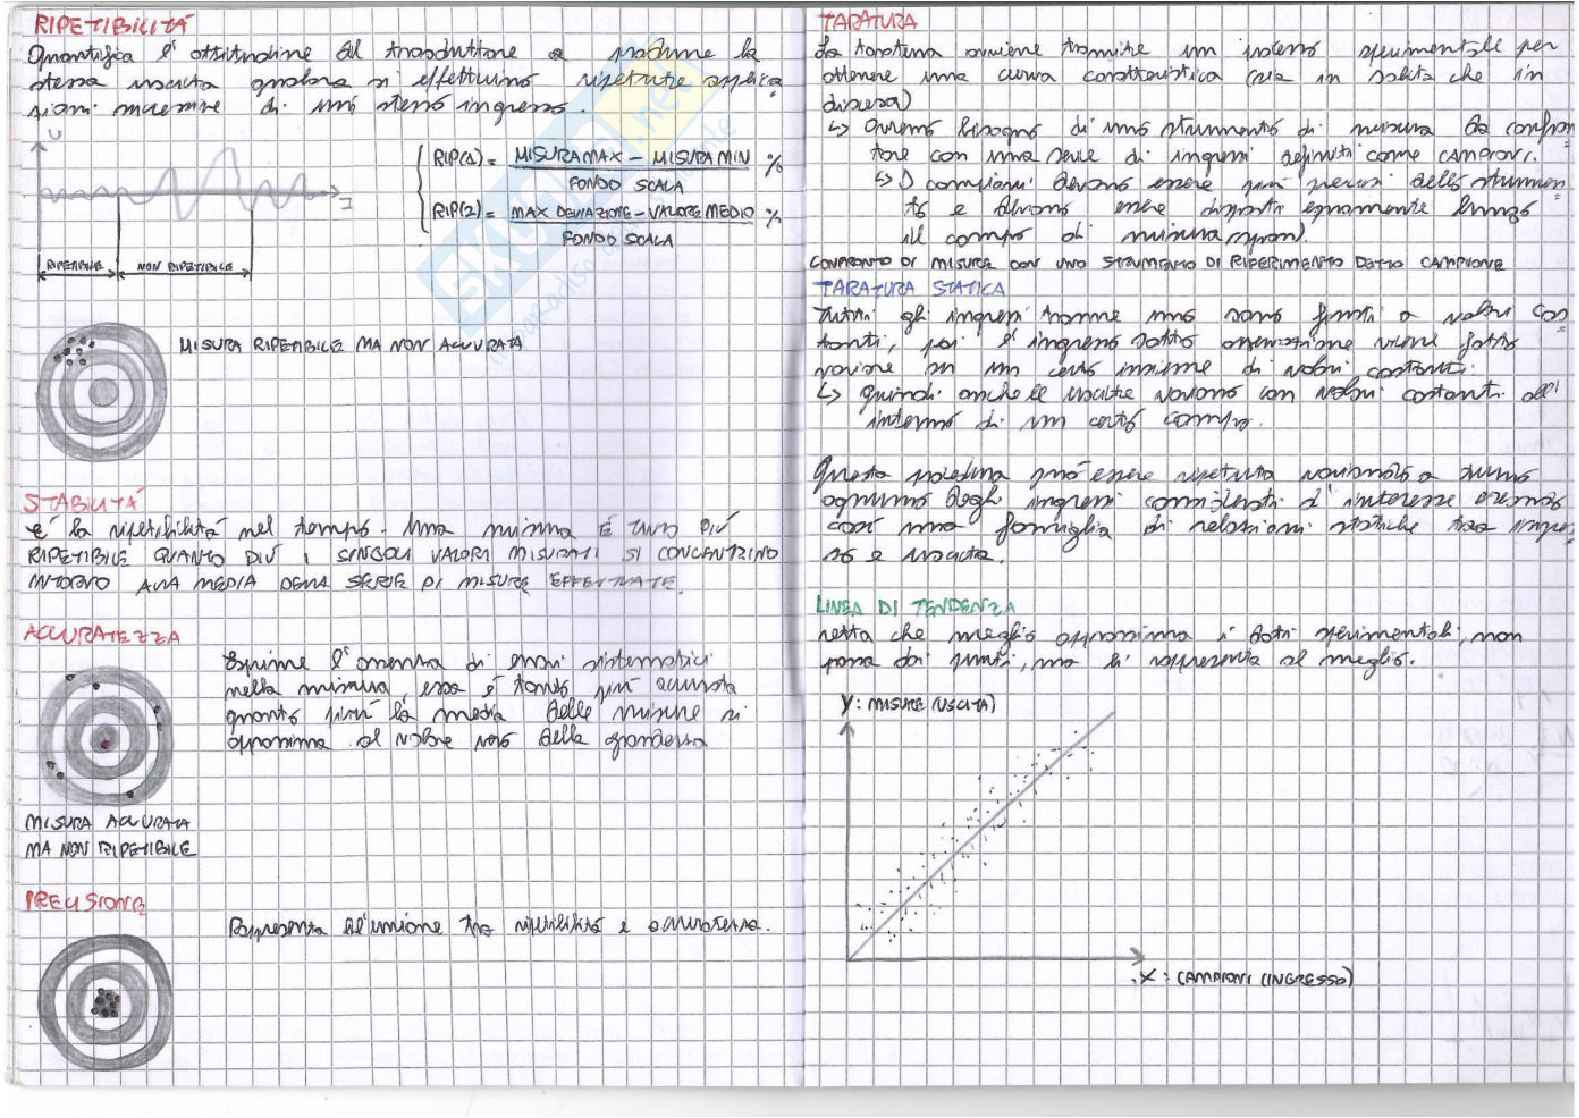 RIPETIBILITÁ
Quantifica l'attitudine del trasduttore a produrre la
stessa uscita qualora si effettuino ripetute applica
zioni successive di uno stesso ingresso.
U
I
RIPETIBILE
NON RIPETIBILE
RIP(1) = MISURA MAX - MISURA MIN %
FONDO SCALA
RIP(2) = MAX DEVIAZIONE - VALORE MEDIO %
FONDO SCALA
MISURA RIPETIBILE MA NON ACCURATA
STABILITÁ
é la ripetibilitá nel tempo. Una misura É TANTO PIÚ
RIPETIBILE QUANTO PIÚ I SINGOLI VALORI MISURATI SI CONCENTRINO
INTORNO ALLA MEDIA DELLA SERIE DI MISURE EFFETTUATE.
ACCURATEZZA
Esprime l'assenza di errori sistematici
nella misura, essa é tanto piú accurata
quanto piú la media delle misure si
approssima al valore vero della grandezza
MISURA ACCURATA
MA NON RIPETIBILE
PRECISIONE
Rappresenta l'unione tra ripetibilitá e accuratezza.
TARATURA
La taratura avviene tramite un processo sperimentale per
ottenere una curva caratteristica (sia in salita che in
discesa)
↳ Avremo bisogno di uno strumento di misura da confron
tare con una serie di ingressi definiti come CAMPIONI.
↳ I campioni devono essere piú precisi dello strumen
to e devono essere disposti equamente lungo
il campo di misura
CONFRONTO DI MISURE CON UNO STRUMENTO DI RIFERIMENTO DETTO CAMPIONE
TARATURA STATICA
Tutti gli ingressi tranne uno sono fissati a valori cos
tanti, poi l'ingresso sotto osservazione viene fatto
variare in un certo insieme di valori costanti.
↳ Quindi anche le uscite variano con valori costanti all'
interno di un certo campo.
Questa procedura può essere ripetuta variando a turno
ognuno degli ingressi considerati d'interesse
cosí una famiglia di relazioni statiche tra ingres
so e uscita.
LINEA DI TENDENZA
retta che meglio approssima i dati sperimentali, non
passa dai punti, ma li rappresenta al meglio.
Y: MISURE (USCITA)
X: CAMPIONI (INGRESSO)